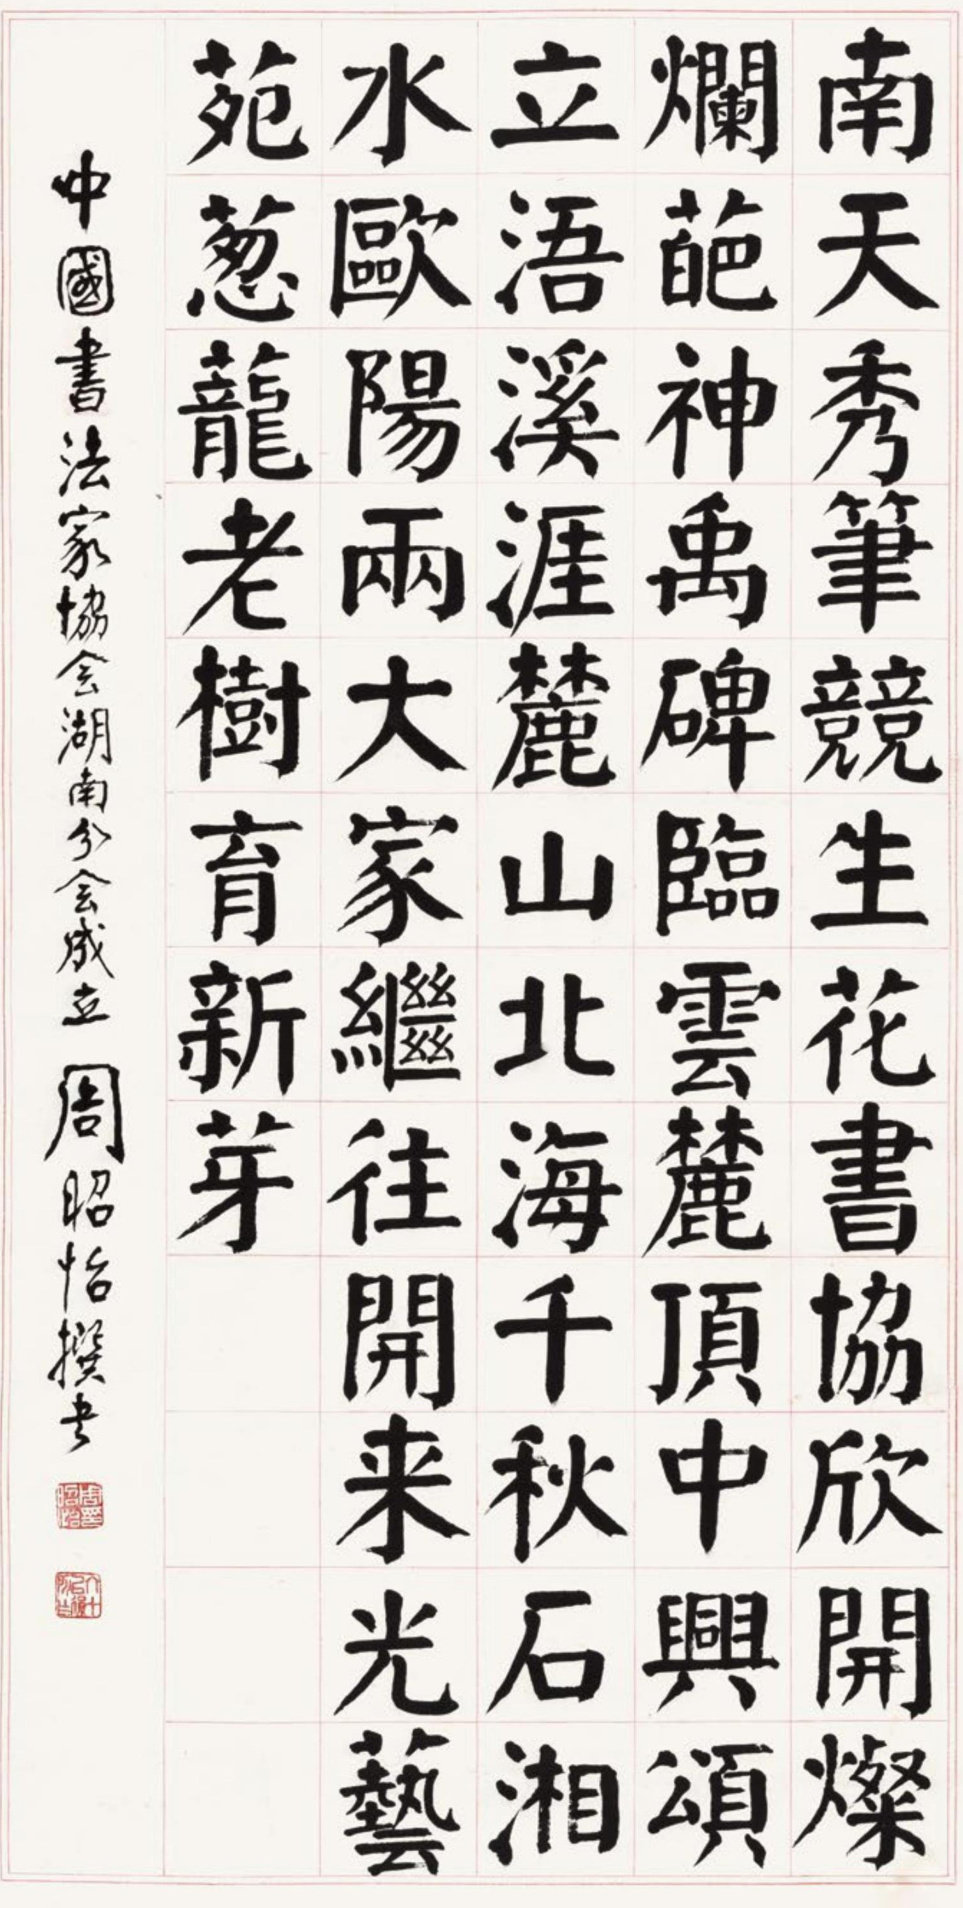 南天秀筆競生花書協欣開燦
爛葩神禹碑臨雲麓頂中興頌
立浯溪涯麓山北海千秋石湘
水歐陽兩大家繼往開来光藝
苑葱蘢老樹育新芽
中國書法家協会湖南分会成立 周昭怡撰书
周昭怡